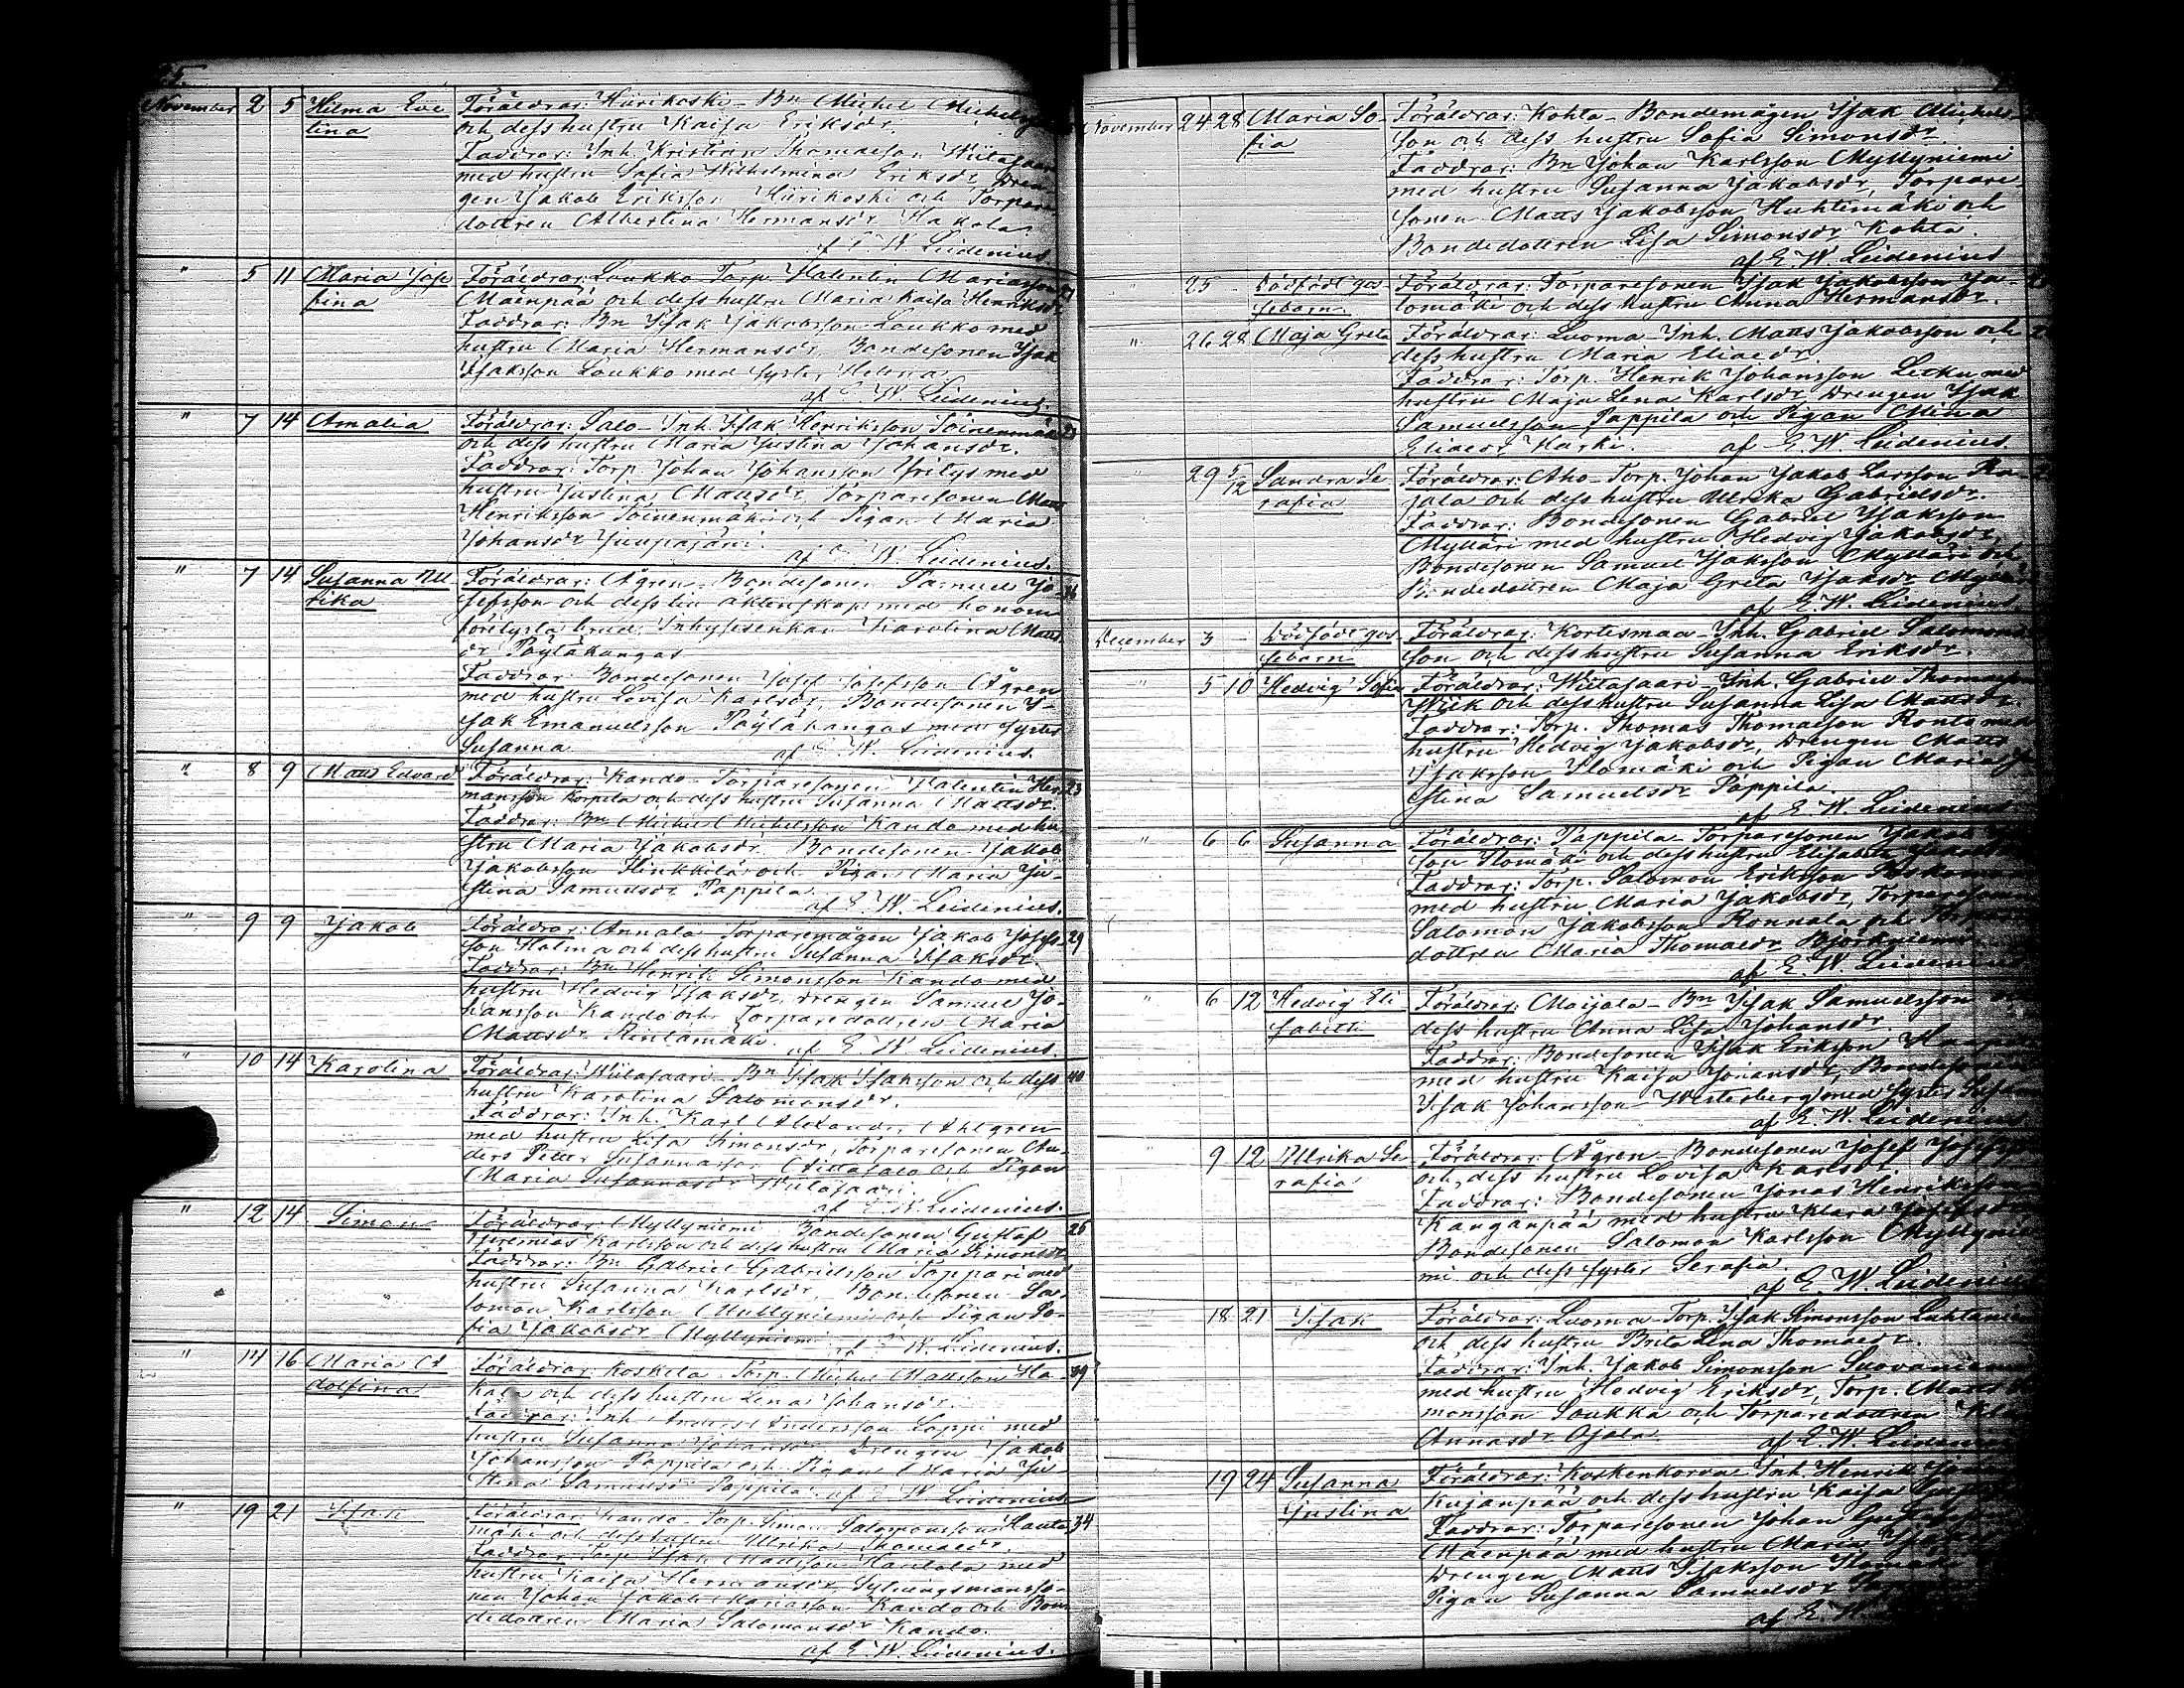 November 2 5 Hilma Eve Föräldrar: Hiirikoski - Bn Michel Michelss
lina och dess hustru Kaisa Eriksdr.
Faddrar: Inh. Kristian Thomasson Wiitasaari
med hustru Sofia Wilhelmina Eriksdr, Dren-
gen Jakob Eriksson Hiirikoski och Torpare
dottren Albertina Hermansdr Hakola
af E. W. Leidenius.
" 5 11 Maria Jose Föräldrar: Loukko Torp. Valentin Mariasson
fina Mäenpää och dess hustru Maria Kaisa Henriksdr
Faddrar: Bn Isak Jakobsson Loukko med
hustru Maria Hermansdr, Bondesonen Isak
Isaksson Loukko med syster Helena
af E. W. Leidenius.
" 7 14 Amalia Föräldrar: Salo - Inh. Isak Henriksson Töinenmäki
och dess hustru Maria Justina Johansdr.
Faddrar: Torp. Johan Johansson Yritys med
hustru Justina Mattsdr, Torparesonen Matts
Henriksson Töinenmäki och Pigan Maria
Johansdr Juupajärvi.
af E. W. Leidenius.
" 7 14 Susanna Ull- Föräldrar: Ågren - Bondesonen Samuel Jo- 26
rika sefsson och dess till äktenskap med honom
förelysta brud, Inhysesenkan Karolina Matts
dr Pöyläkangas
Faddrar: Bondesonen Josef Josefsson Ågren
med hustru Lovisa Karlsdr, Bondesonen I-
sak Emanuelsson Pöyläkangas med syster
Susanna af E. W. Leidenius.
" 8 9 Matts Edvard Föräldrar: Kando - Torparesonen Valentin Her- 23
mansson Korpela och dess hustru Susanna Mattsdr.
Faddrar: Bn Michel Michelsson Kando med hu-
stru Maria Jakobsdr, Bondesonen Jakob
Jakobsson Hinkkilä och Pigan Maria Ju-
stina Samuelsdr Pappila.
af E. W. Leidenius.
" 9 9 Jakob Föräldrar: Annala Torparemågen Jakob Josefs- 29
son Halma och dess hustru Susanna Isaksdr
Faddrar: Bn Henrik Simonsson Kando med
hustru Hedvig Isaksdr, Drengen Samuel Jo-
hansson Kando och Torparedottren Maria
Mattsdr Rintamäki. af E. W. Leidenius.
" 10 14 Karolina Föräldrar: Wiitasaari - Bn Isak Isaksson och dess 40
hustru Karolina Salomonsdr.
Faddrar: Inh. Karl Alexander Ahlgren
med hustru Lisa Simonsdr, Torparesonen An-
ders Petter Susannasson Aittasalo och Pigan
Maria Susannasdr Wiitasaari.
af E. W. Leidenius.
" 12 14 Simon Föräldrar: Myllyniemi - Bondesonen Gustaf 25
Jeremias Karlsson och dess hustru Maria Simonsdr
Faddrar: Bn Gabriel Gabrielsson Tappari med
hustru Susanna Karlsdr, Bondesonen Sa-
lomon Karlsson Myllyniemi och Pigan So-
fia Jakobsdr Myllyniemi
af E. W. Leidenius.
" 14 16 Maria A Föräldrar: Koskela - Torp. Michel Mattsson Ha- 39
dolfina kala och dess hustru Lena Johansdr.
Faddrar: Inh. Anders Andersson Lappi med
hustru Susanna Johansdr, Drengen Jakob
Johansson Pappila och Pigan Maria Ju-
stina Samuelsdr Pappila. af E. W. Leidenius
" 19 21 Isak Föräldrar: Kando - Torp. Simon Salomonsson Hauta- 34
mäki och dess hustru Ullrika Thomasdr.
Faddrar: Torp. Isak Mattsson Hautala med
hustru Kaisa Hermansdr, Sytningsmansso-
nen Johan Jakob Mariasson Kando och Bon-
dedottren Maria Salomonsdr Kando.
af E. W. Leidenius.
November 24 28 Maria So- Föräldrar: Kohta - Bondemågen Isak Michels-
fia son och dess hustru Sofia Simonsdr.
Faddrar: Bn Johan Karlsson Myllyniemi
med hustru Susanna Jakobsdr, Torpare-
sonen Matts Jakobsson Huhtimäki och
Bondedottren Lisa Simonsdr Kohta.
af E. W. Leidenius
" 25 - Dödfödt gos- Föräldrar: Torparesonen Isak Jakobsson Ja-
sebarn lomäki och dess hustru Anna Hermansdr.
" 26 28 Maja Greta Föräldrar: Luoma - Inh. Matts Jakobsson och
dess hustru Maria Eliaedr.
Faddrar: Torp. Henrik Johansson Letku med
hustru Maja Lena Karlsdr, Drengen Isak
Samuelsson Pappila och Pigan Mina
Eliaedr Harki. af E. W. Leidenius
" 29 5/12 Sandra Se Föräldrar: Aho - Torp. Johan Jakob Larsson Ra-
rafia jala och dess hustru Ulrika Gabrielsdr.
Faddrar: Bondesonen Gabriel Isaksson
Mylläri med hustru Hedvig Jakobsdr,
Bondesonen Samuel Isaksson Mylläri och
Bondedottren Maja Greta Isaksdr Mylläri
af E. W. Leidenius
December 3 - Dödfödt gos- Föräldrar: Kortesmaa - Inh. Gabriel Salomons-
sebarn son och dess hustru Susanna Eriksdr.
" 5 10 Hedvig Sofia Föräldrar: Wiitasaari - Inh. Gabriel Thomasson
Wiik och dess hustru Susanna Lisa Mattsdr.
Faddrar: Torp. Thomas Thomasson Ronta med
hustru Hedvig Jakobsdr, Drengen Matts
Isaksson Ylomäki och Pigan Maria Ju
stina Samuelsdr Pappila.
af E. W. Leidenius
" 6 6 Susanna Föräldrar: Pappila - Torparesonen Jakob
son Ylomäki och dess hustru Elisabeth
Faddrar: Torp. Salomon Eriksson
med hustru Maria Jakobsdr, Torpareson
Salomon Jakobsson Rönnola och Torpare
dottren Maria Thomasdr Björkniemi.
af E. W. Leidenius
" 6 12 Hedvig Eli Föräldrar: Maijala - Bn Isak Samuelsson och
sabeth dess hustru Anna Lisa Johansdr
Faddrar: Bondesonen Isak Eriksson
med hustru Kaisa Johansdr, Bondesonen
Isak Johansson Westerberg med syster
af E. W. Leidenius
9 12 Ullrika Se Föräldrar: Ågren - Bondesonen Josef Josefsson
rafia och dess hustru Lovisa Karlsdr.
Faddrar: Bondesonen Jonas Henriksson
Kanganpää med hustru Klara Josefsdr
Bondesonen Salomon Karlsson Myllynie
mi och dess syster Serafia.
af E. W. Leidenius
18 21 Isak Föräldrar: Luoma - Torp. Isak Simonsson Luhtanie
och dess hustru Brita Lena Thomaedr
Faddrar: Inh. Jakob Simonsson Luovaniemi
med hustru Hedvig Eriksdr, Torp. Matts
monsson Loukka och Torparedottren
Annasdr Ojala. af E. W. Leidenius
19 24 Susanna Föräldrar: Koskenkorva Inh. Henrik
Justina Kujanpää och dess hustru Kaisa
Faddrar: Torparesonen Johan
Mäenpää med hustru Maria
Drengen Matts Isaksson
Pigan Susanna Samuelsdr
af E. W.